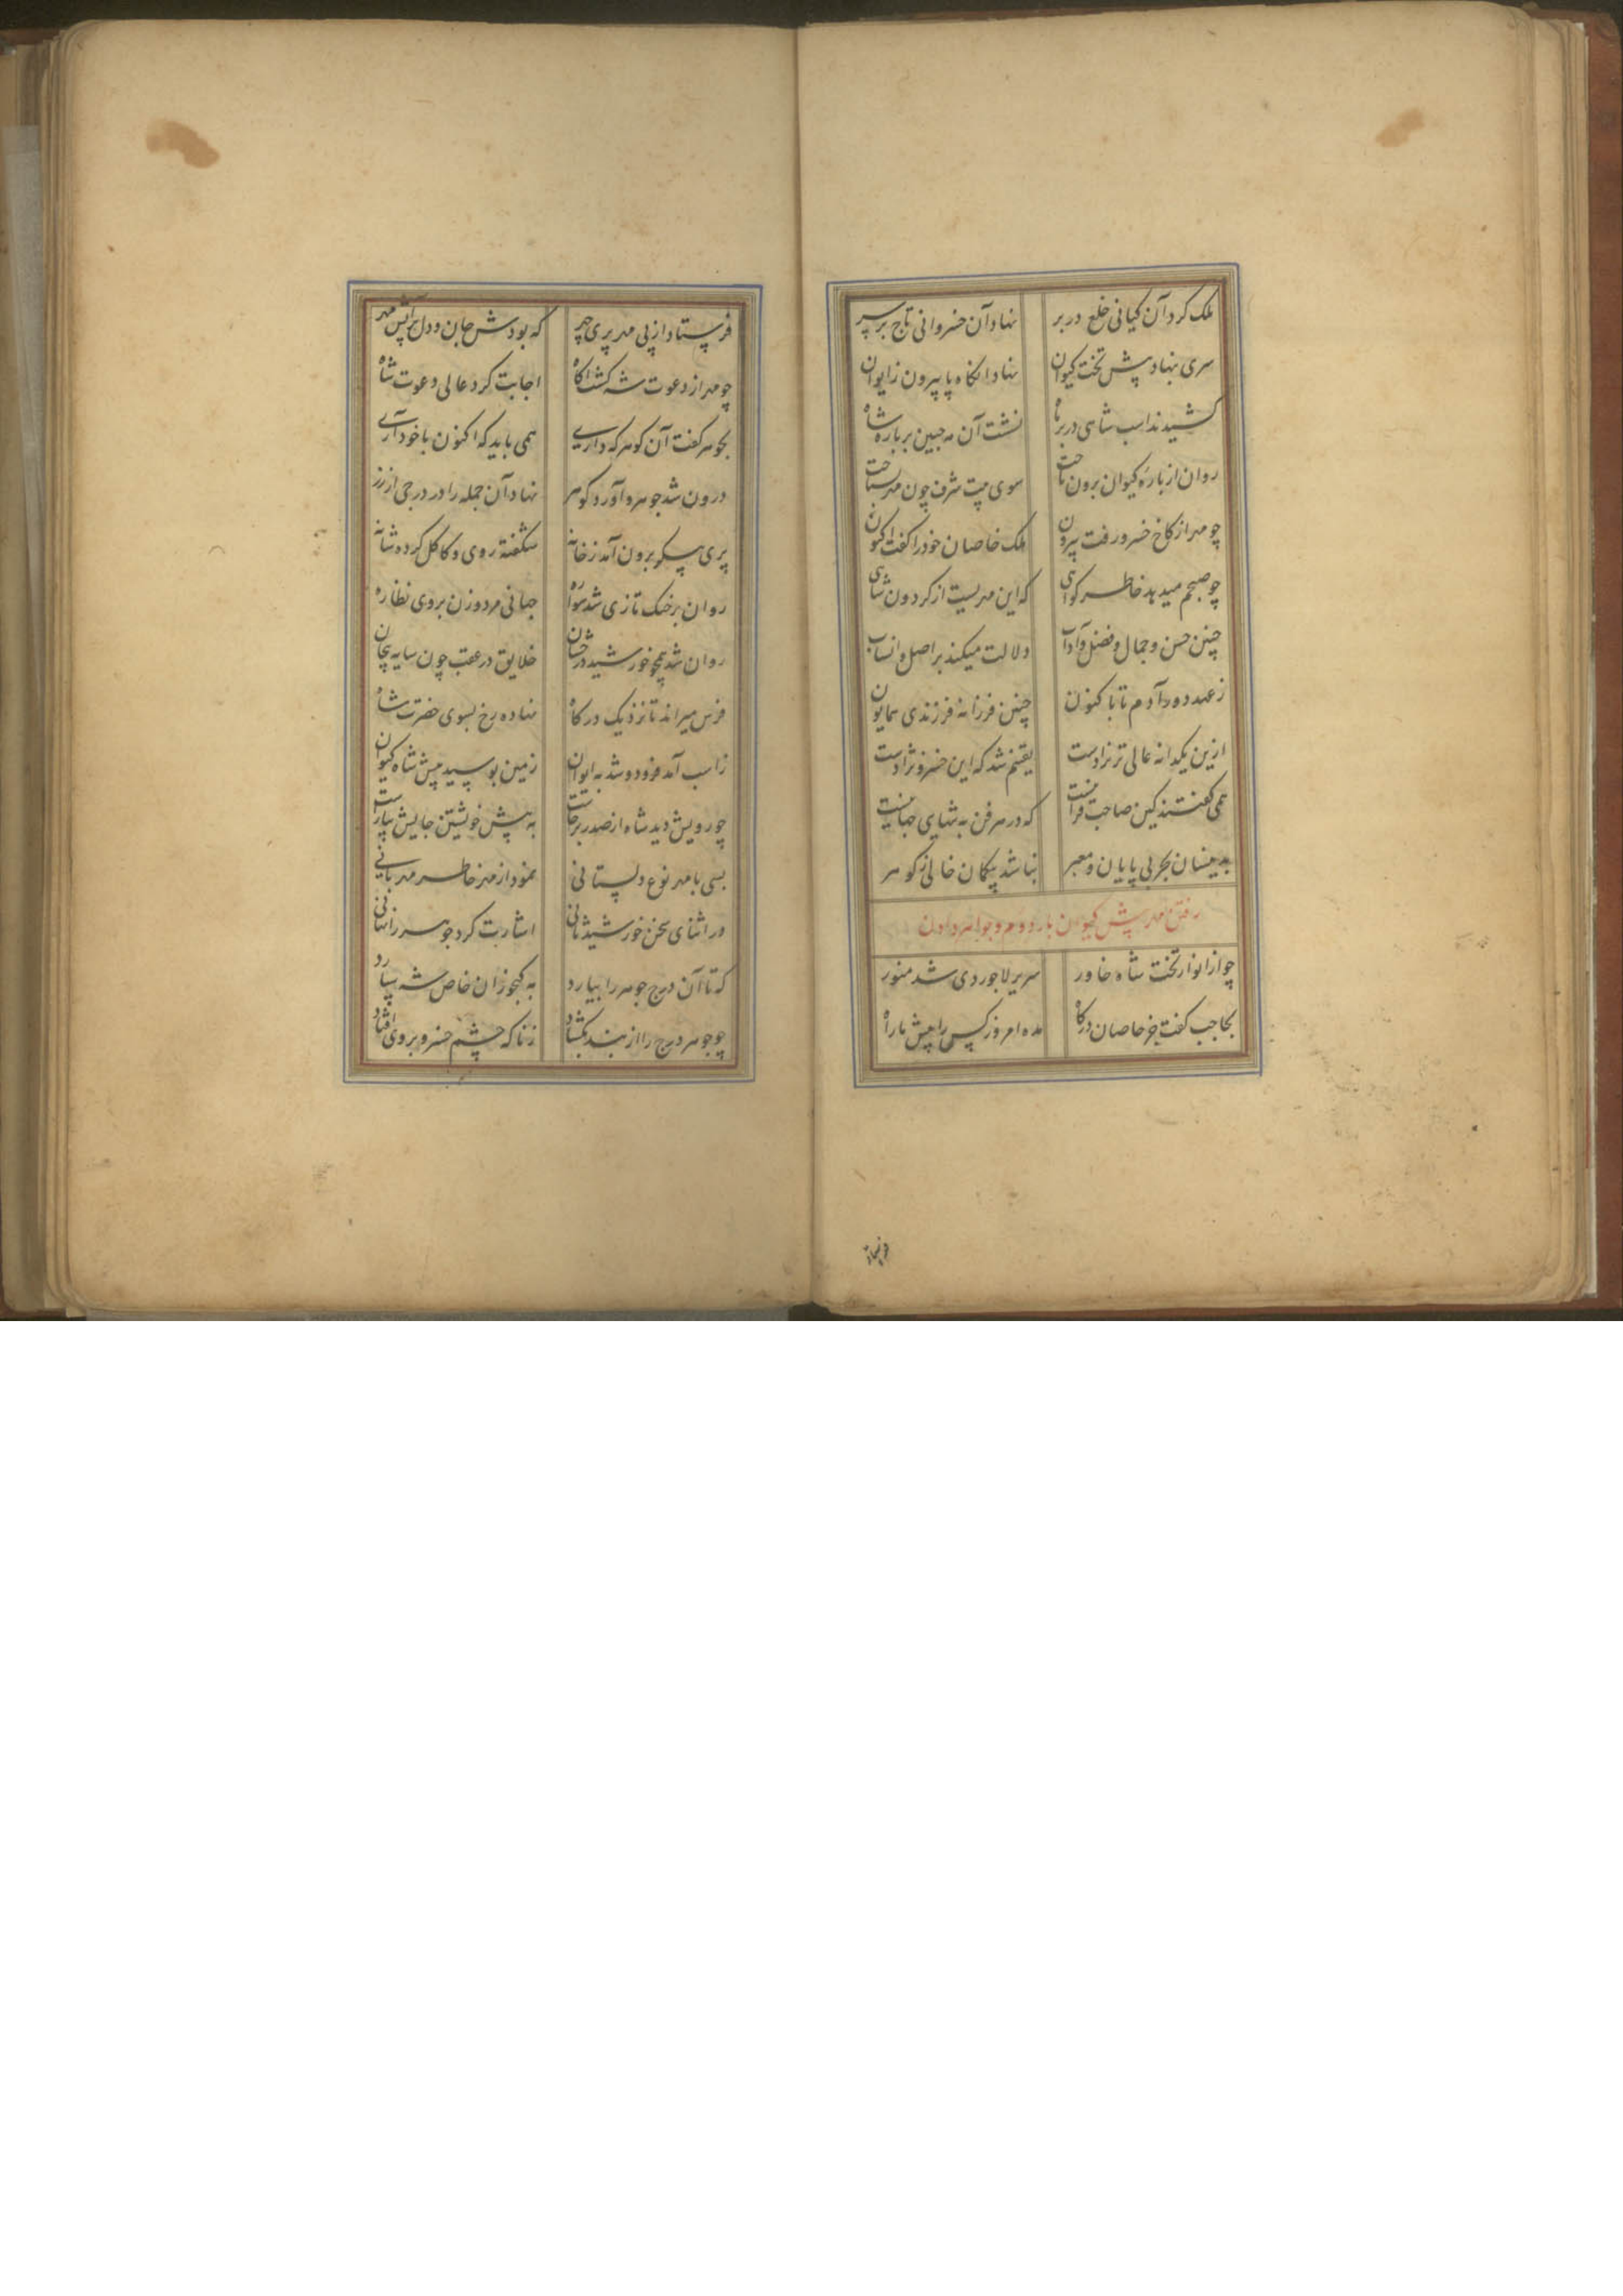 ملک کرد آن کیانی خلع در بر نهاد آن خسروانی تاج بر سر
سری بنهاد پیش تخت کیوان نهاد آنگاه پا بیرون ز ایوان
کشیدند اسب شاهی در بر ماه نشست آن مه جبین بر باره شاه
روان از باره کیوان برون تاخت سوی بیت شرف چون مهر
چو مهر از کاخ خسرو رفت بیرون ملک خاصان خود را گفت اکنون
چو صبحم میدهد خاطر گواهی که این مهریست از گردون شاهی
چنین حسن و جمال و فضل و آداب دلالت میکند بر اصل و انساب
ز عهد دور آدم تا باکنون چنین فرزانه فرزندی همایون
ازین یکدانه عالی تر نزادست یقینم شد که این خسرو نژادست
همی گفتند کین صاحب فراست که در هر فن به تنهایی جهانیست
بدینسان بحر بی پایان و معبر نباشد بیگمان خالی ز گوهر
رفتن مهر پیش کیوان بار دوم و جواهر دادن
چو از انوار تخت شاه خاور سریر لاجوردی شد منور
بحاجب گفت جز خاصان درگاه مده امروز کس را پیش ما راه
فرستاد
فرستاد از پی مهر پری چهر که بودش جان و دل بر آتش مهر
چو مهر از دعوت شه گشت آگاه اجابت کرد عالی دعوت شاه
بجوهر گفت آن گوهر که داری همی باید که اکنون با خود آری
درون شد جوهر و آورد گوهر نهاد آن جمله را در درجی از زر
پری پیکر برون آمد ز خانه شکفته روی و کاکل کرده شانه
روان بر خنک تازی شد سواره جهانی مرد و زن بروی نظاره
روان شد همچو خورشید درخشان خلایق در عقب چون سایه پیچان
فرس میراند تا نزدیک درگاه نهاده رخ بسوی حضرت شاه
ز اسب آمد فرود و شد به ایوان زمین بوسید پیش شاه کیوان
چو رویش دید شاه از صدر برخاست به پیش خویشتن جایش بیاراست
بسی با مهر نوع دلستانی نمود از مهر خاطر مهربانی
در اثنای سخن خورشید ثانی اشارت کرد جوهر را نهانی
که تا آن درج جوهر را بیارد به گنجوران خاص شه سپارد
چو جوهر درج را از بند بگشاد زناگه چشم خسرو بروی افتاد